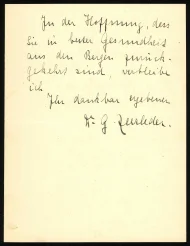 In der Hoffnung, dass
Sie in bester Gesundheit
aus den Bergen zurück-
gekehrt sind, verbleibe
ich
Ihr dankbar ergebener
Dr G. Zeerleder.